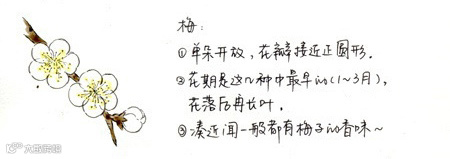 梅：
①单朵开放，花瓣接近正圆形.
②花期是这几种中最早的(1~3月)，
花落后再长叶.
③凑近闻一般都有梅子的香味~